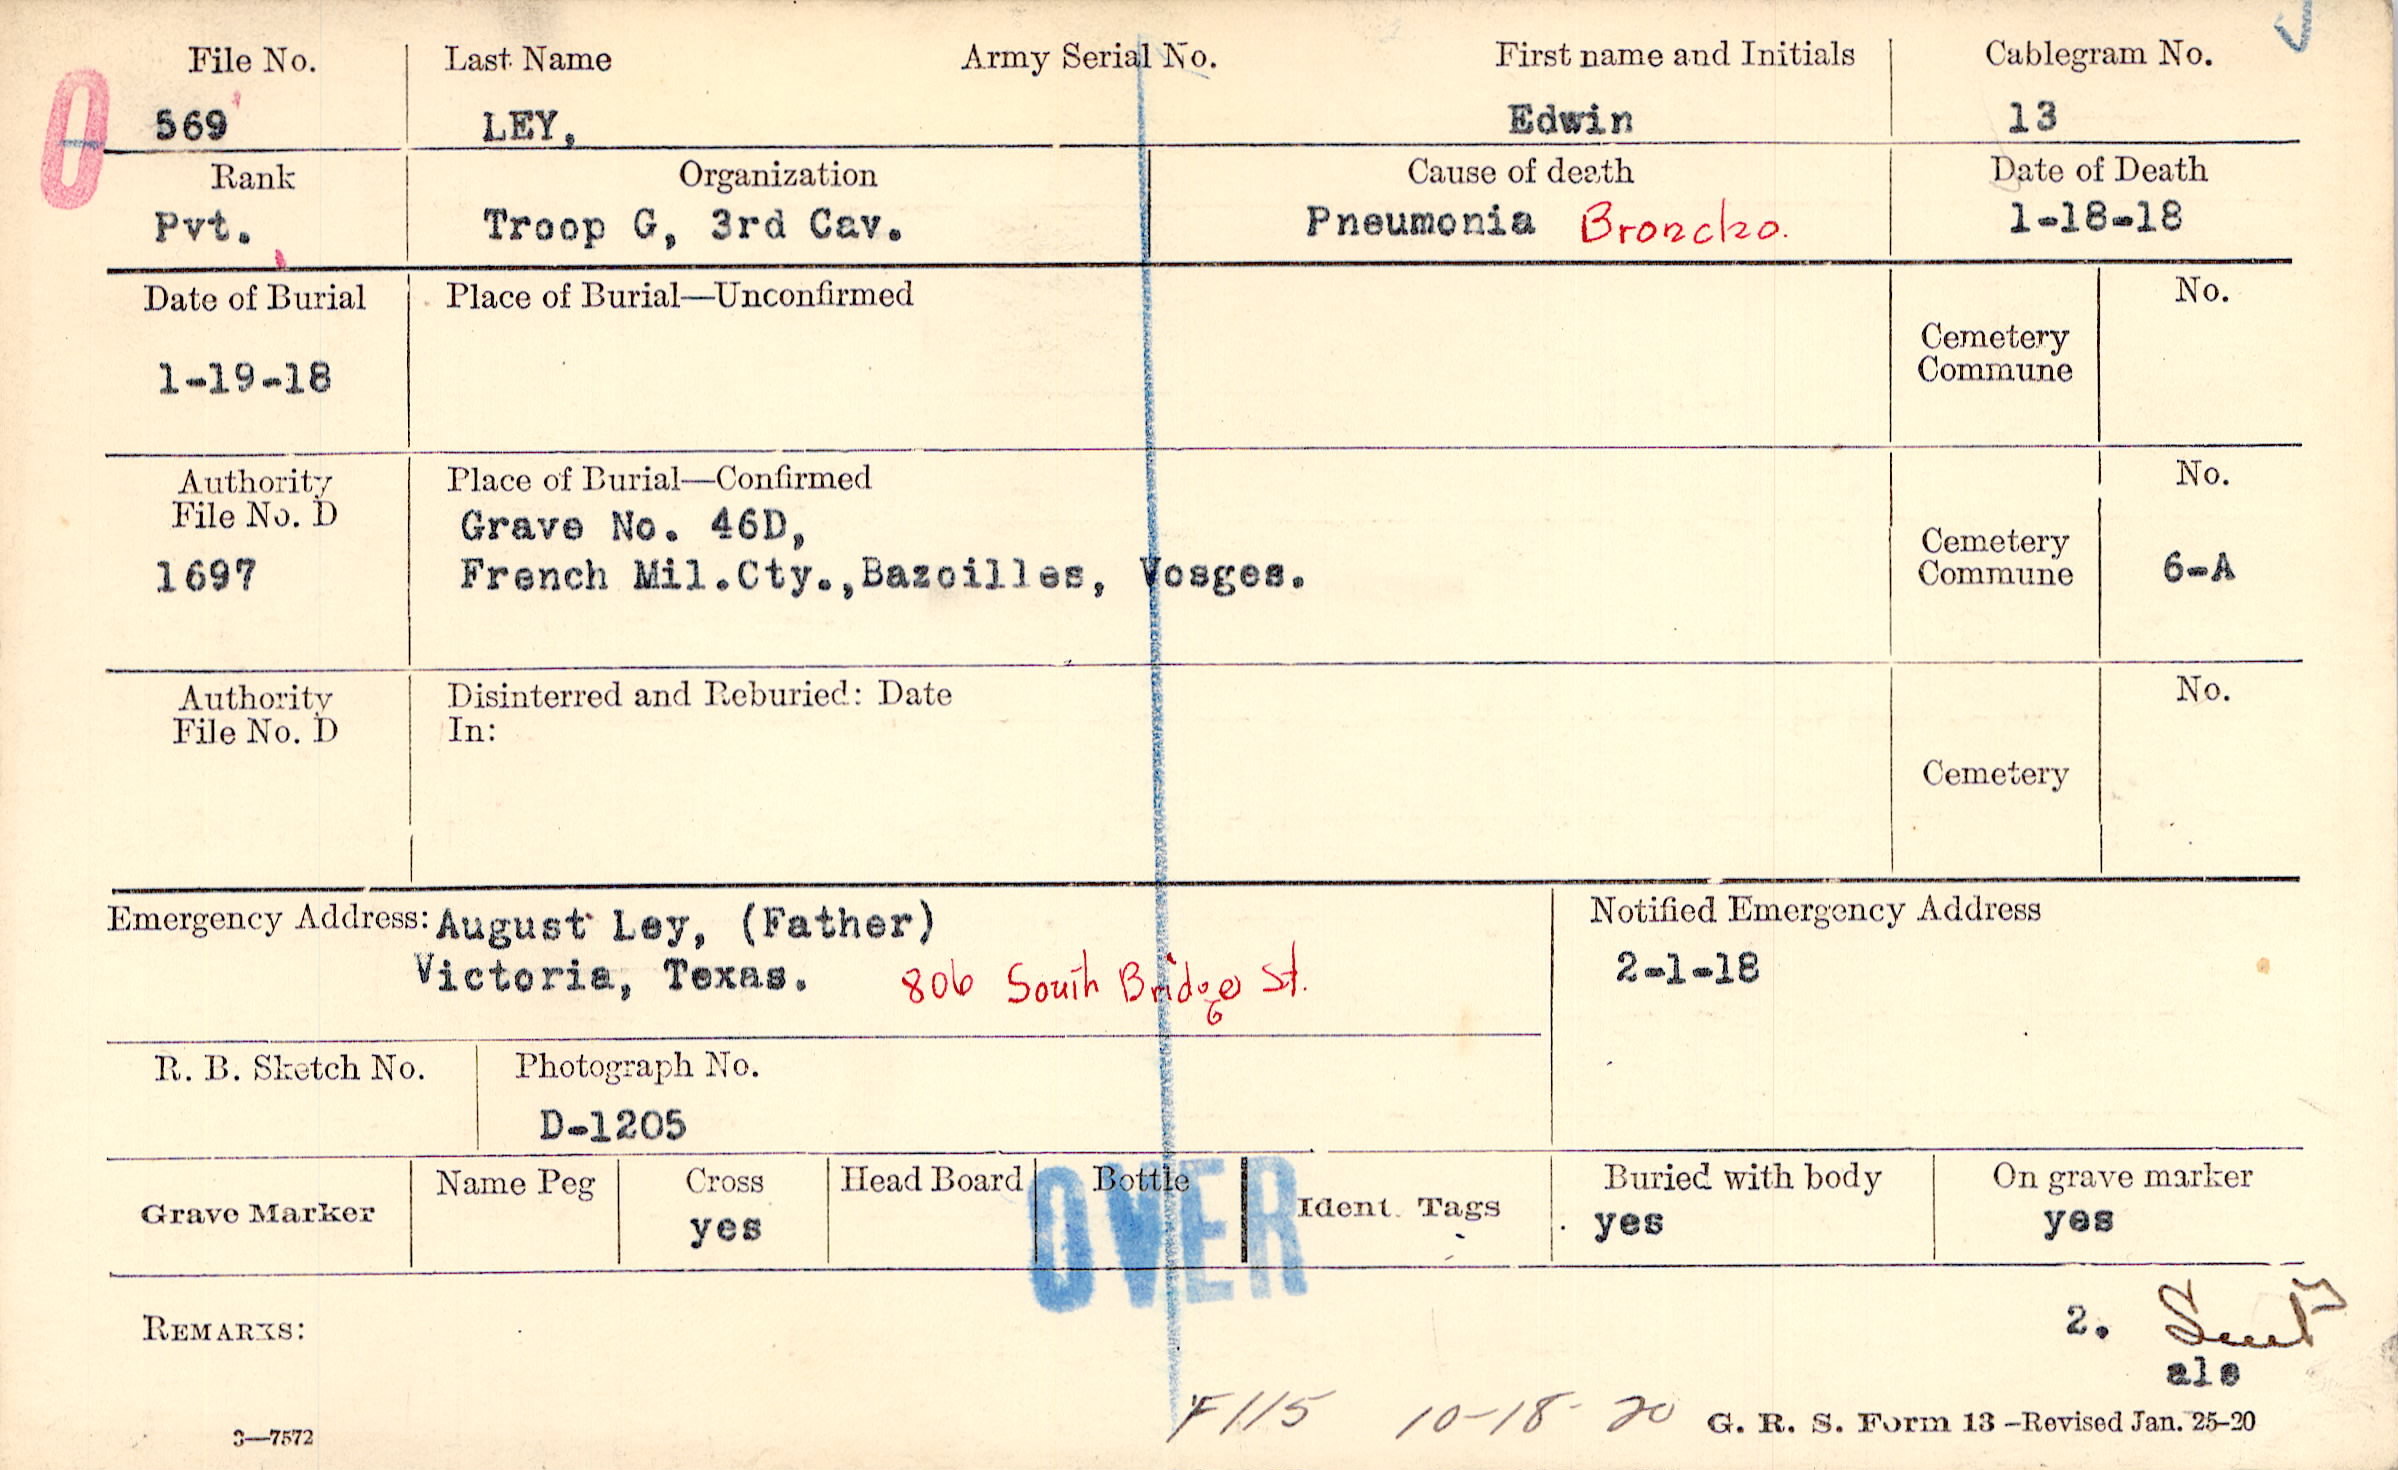 File No. Last Name Army Serial No. First name and Initials Cablegram No.
569 LEY, Edwin 13
Rank Organization Cause of death Date of Death
Pvt. Troop G, 3rd Cav. Pneumonia Broncho. 1-18-18
Date of Burial Place of Burial—Unconfirmed No.
Cemetery
Commune
1-19-18
Authority Place of Burial—Confirmed No.
File No. D Grave No. 46D,
Cemetery
1697 French Mil.Cty.,Bazoilles, Vosges. Commune 6-A
Authority Disinterred and Reburied: Date No.
File No. D In:
Cemetery
Emergency Address: August Ley, (Father) Notified Emergency Address
Victoria, Texas. 806 South Bridge St. 2-1-18
R. B. Sketch No. Photograph No.
D-1205
Grave Marker Name Peg Cross Head Board Bottle Ident. Tags Buried with body On grave marker
yes yes yes
OVER
REMARKS: 2.
als
F115 10-18-20 G. R. S. Form 13—Revised Jan. 25-20
3—7572